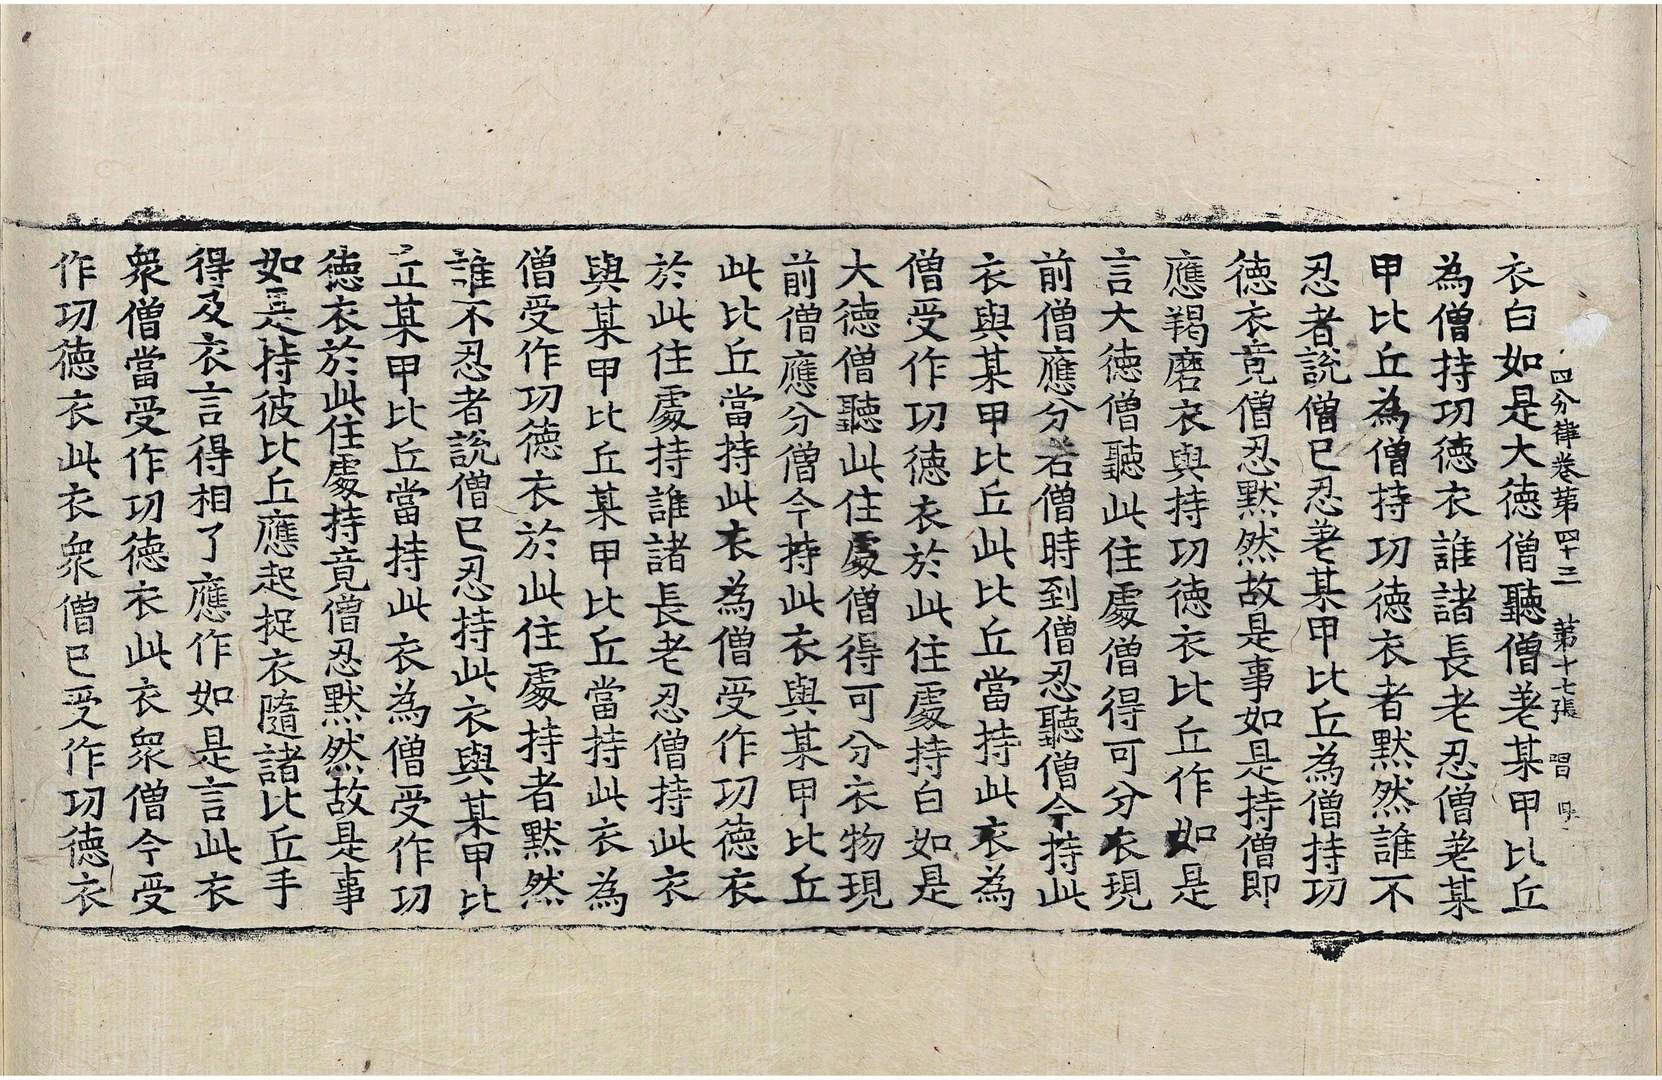 四分律卷第四十三 第十七張
衣白如是大德僧聽僧差某甲比丘
為僧持功德衣誰諸長老忍僧差某
甲比丘為僧持功德衣者默然誰不
忍者說僧已忍差某甲比丘為僧持功
德衣竟僧忍默然故是事如是持僧即
應羯磨衣與持功德衣比丘作如是
言大德僧聽此住處僧得可分衣現
前僧應分若僧時到僧忍聽僧今持此
衣與某甲比丘此比丘當持此衣為
僧受作功德衣於此住處持白如是
大德僧聽此住處僧得可分衣物現
前僧應分僧今持此衣與某甲比丘
此比丘當持此衣為僧受作功德衣
於此住處持誰諸長老忍僧持此衣
與某甲比丘某甲比丘當持此衣為
僧受作功德衣於此住處持者默然
誰不忍者說僧已忍持此衣與某甲比
丘某甲比丘當持此衣為僧受作功
德衣於此住處持竟僧忍默然故是事
如是持彼比丘應起捉衣隨諸比丘手
得及衣言得相了應作如是言此衣
衆僧當受作功德衣此衣衆僧今受
作功德衣此衣衆僧已受作功德衣